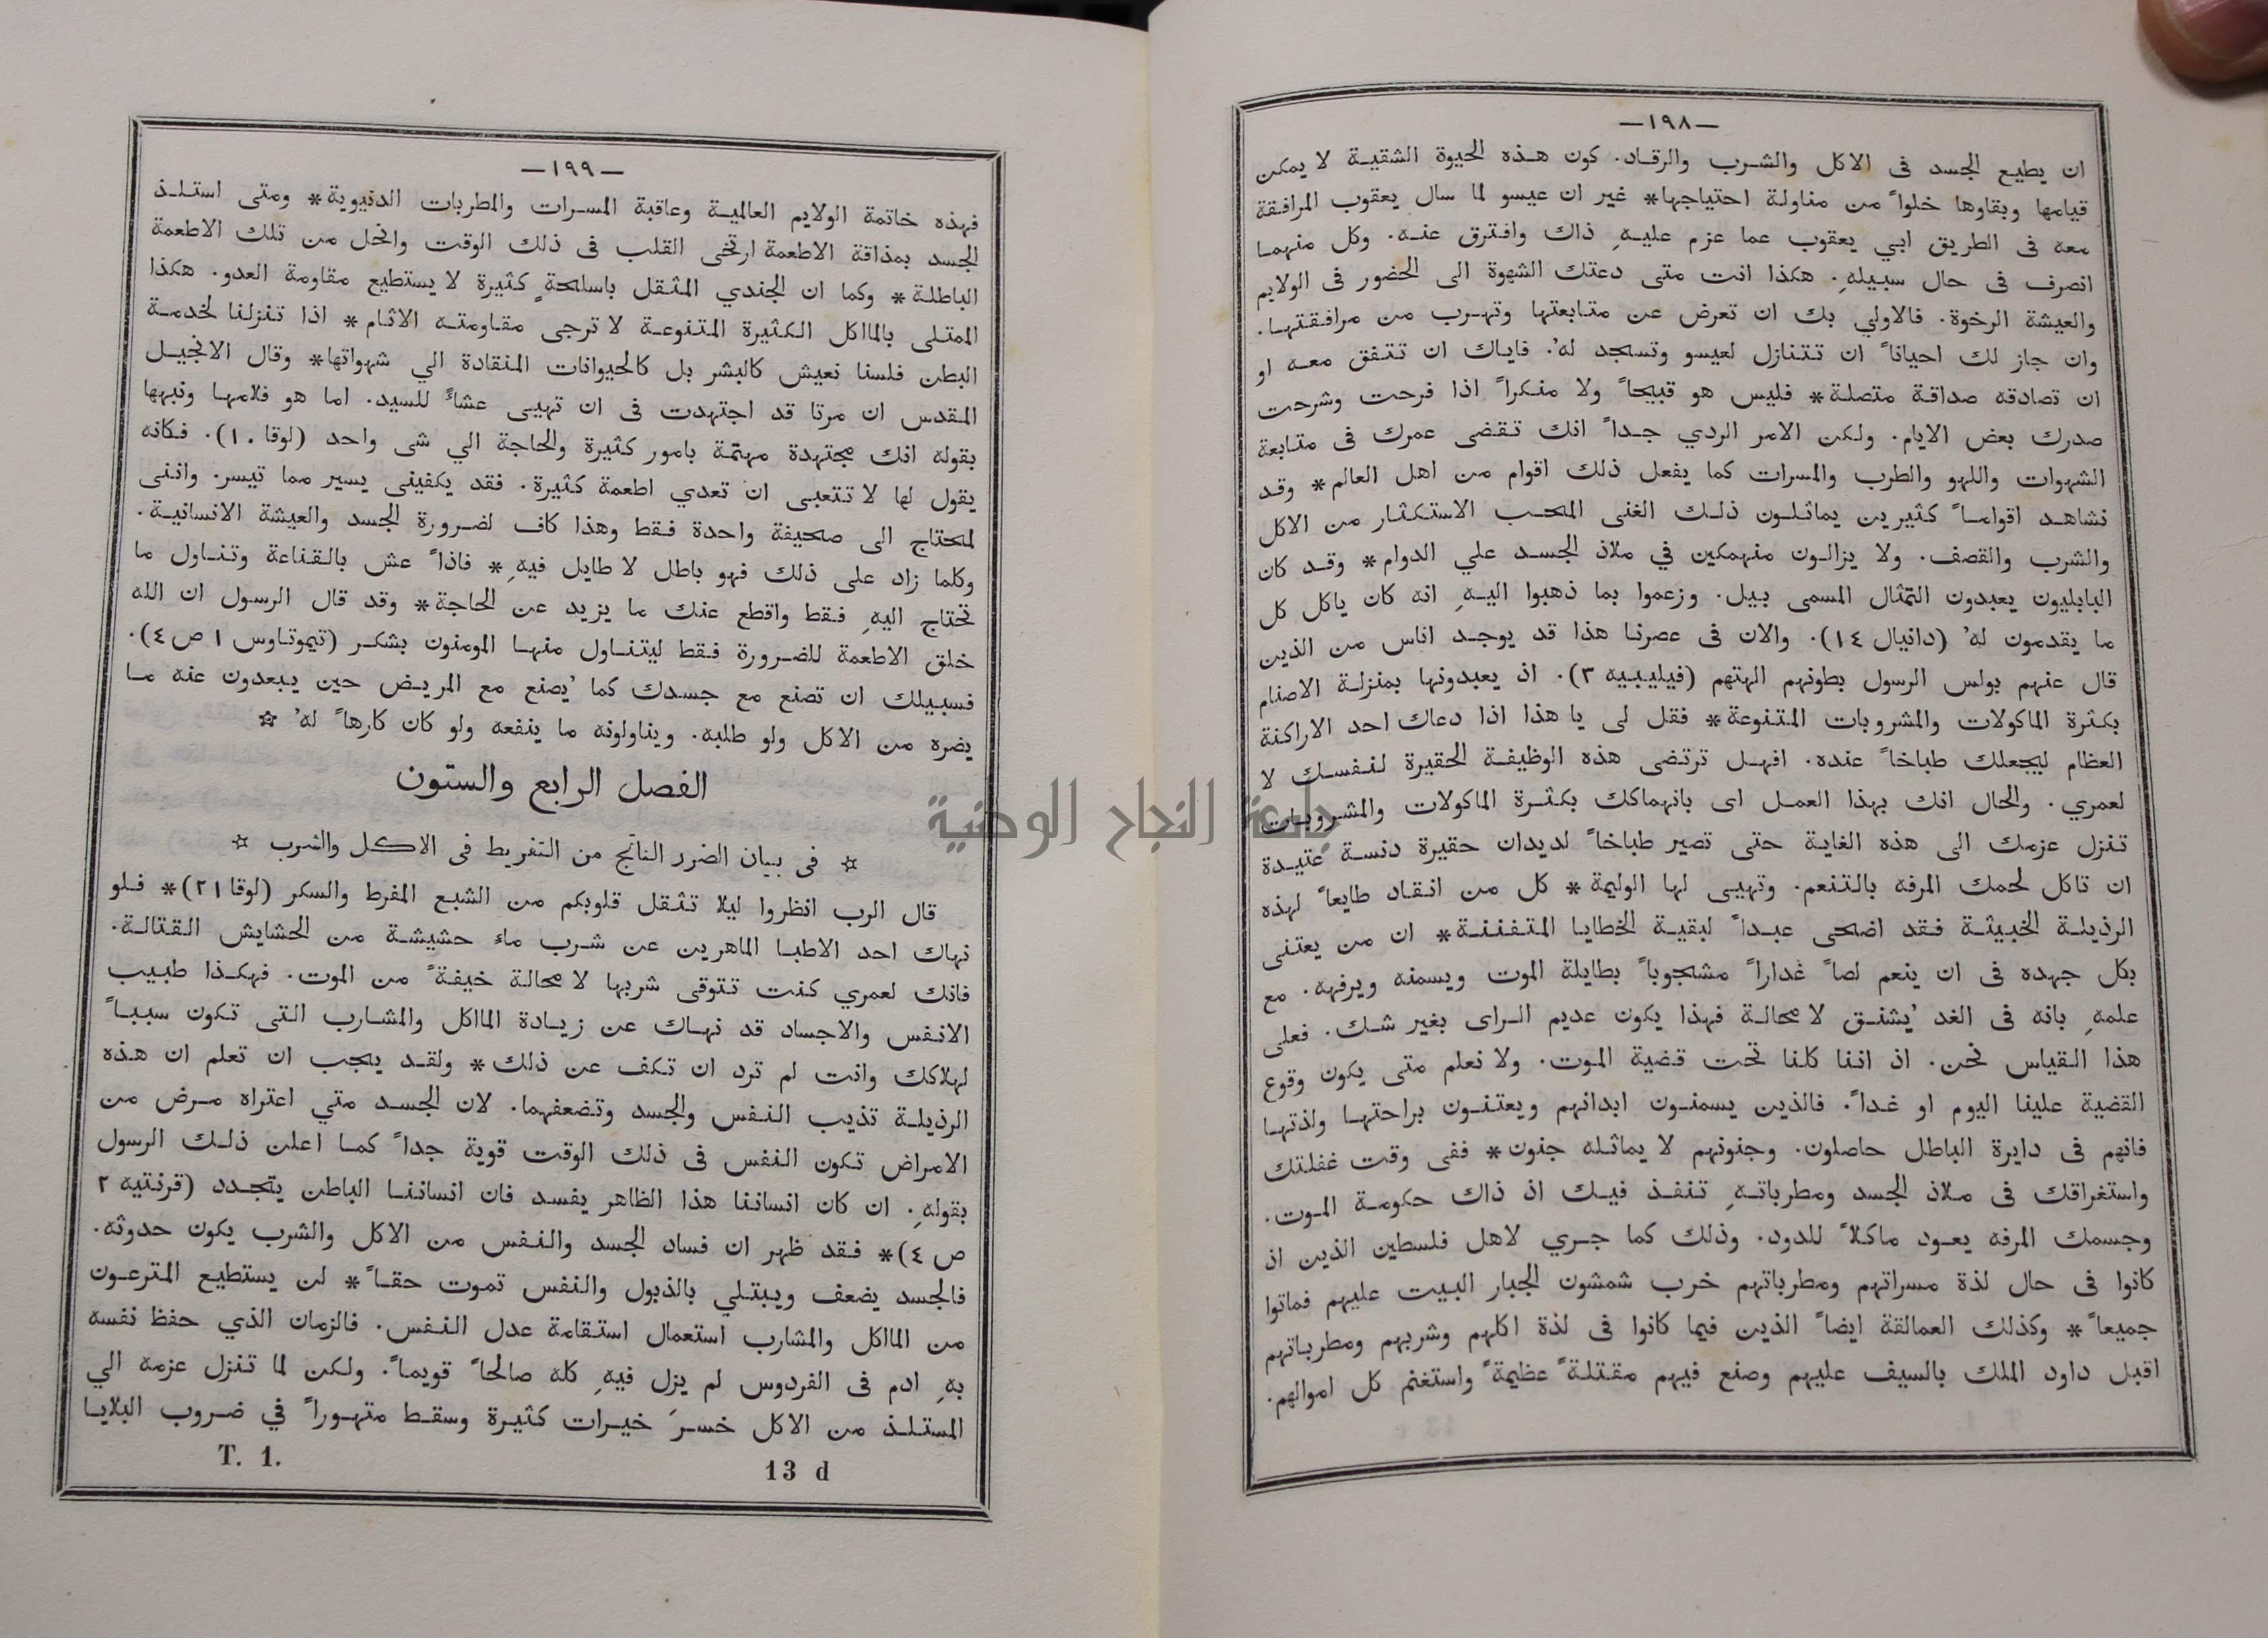 —١٩٨—
ان يطيع الجسد فى الاكل والشرب والرقاد. كون هذه الحيوة الشقية لا يمكن
قيامها وبقاوها خلواً من مناولة احتياجها* غير ان عيسو لما سال يعقوب المرافقة
معه فى الطريق ابي يعقوب عما عزم عليهِ ذاك وافترق عنه. وكل منهما
انصرف فى حال سبيلهِ. هكذا انت متى دعتك الشهوة الى الحضور فى الولايم
والعيشة الرخوة. فالاولي بك ان تعرض عن متابعتها وتهرب من مرافقتها.
وان جاز لك احياناً ان تتنازل لعيسو وتسجد لهُ. فاياك ان تتفق معه او
ان تصادقه صداقة متصلة* فليس هو قبيحاً ولا منكراً اذا فرحت وشرحت
صدرك بعض الايام. ولكن الامر الردي جداً انك تقضى عمرك فى متابعة
الشهوات واللهو والطرب والمسرات كما يفعل ذلك اقوام من اهل العالم* وقد
نشاهد اقواماً كثيرين يماثلون ذلك الغنى المحب الاستكثار من الاكل
والشرب والقصف. ولا يزالون منهمكين في ملاذ الجسد علي الدوام* وقد كان
البابليون يعبدون التمثال المسمى بيل. وزعموا بما ذهبوا اليهِ انه كان ياكل كل
ما يقدمون لهُ (دانيال ١٤). والان فى عصرنا هذا قد يوجد اناس من الذين
قال عنهم بولس الرسول بطونهم الهتهم (فيليبيه ٣). اذ يعبدونها بمنزلة الاصنام
بكثرة الماكولات والمشروبات المتنوعة* فقل لى يا هذا اذا دعاك احد الاراكنة
العظام ليجعلك طباخاً عنده. افهل ترتضى هذه الوظيفة الحقيرة لنفسك لا
لعمري. والحال انك بهذا العمل اى بانهماكك بكثرة الماكولات والمشروبات
تنزل عزمك الى هذه الغاية حتى تصير طباخاً لديدان حقيرة دنسة عتيدة
ان تاكل لحمك المرفه بالتنعم. وتهيى لها الوليمة* كل من انقاد طايعاً لهذه
الرذيلة الخبيثة فقد اضحى عبداً لبقية الخطايا المتفننة* ان من يعتنى
بكل جهده فى ان ينعم لصاً غداراً مشجوباً بطايلة الموت ويسمنه ويرفهه. مع
علمهِ بانه فى الغد يُشنق لا محالة فهذا يكون عديم الراى بغير شك. فعلى
هذا القياس نحن. اذ اننا كلنا تحت قضية الموت. ولا نعلم متى يكون وقوع
القضية علينا اليوم او غداً. فالذين يسمنون ابدانهم ويعتنون براحتها ولذتها
فانهم فى دايرة الباطل حاصلون. وجنونهم لا يماثله جنون* ففى وقت غفلتك
واستغراقك فى ملاذ الجسد ومطرباتهِ تنفذ فيك اذ ذاك حكومة الموت.
وجسمك المرفه يعود ماكلاً للدود. وذلك كما جري لاهل فلسطين الذين اذ
كانوا فى حال لذة مسراتهم ومطرباتهم خرب شمشون الجبار البيت عليهم فماتوا
جميعاً* وكذلك العمالقة ايضاً الذين فيما كانوا فى لذة اكلهم وشربهم ومطرباتهم
اقبل داود الملك بالسيف عليهم وصنع فيهم مقتلةً عظيمةً واستغنم كل اموالهم.
—١٩٩—
فهذه خاتمة الولايم العالمية وعاقبة المسرات والمطربات الدنيوية* ومتى استلذ
الجسد بمذاقة الاطعمة ارتخى القلب فى ذلك الوقت وانحل من تلك الاطعمة
الباطلة* وكما ان الجندي المثقل باسلحةٍ كثيرة لا يستطيع مقاومة العدو. هكذا
الممتلى بالماكل الكثيرة المتنوعة لا ترجى مقاومته الاثام* اذا تنزلنا لخدمة
البطن فلسنا نعيش كالبشر بل كالحيوانات المنقادة الي شهواتها* وقال الانجيل
المقدس ان مرتا قد اجتهدت فى ان تهيى عشاءً للسيد. اما هو فلامها ونبهها
بقوله انك مجتهدة مهتمة بامور كثيرة والحاجة الي شى واحد (لوقا ١٠). فكانه
يقول لها لا تتعبى ان تعدي اطعمة كثيرة. فقد يكفينى يسير مما تيسر. واننى
لمحتاج الى صحيفة واحدة فقط وهذا كاف لضرورة الجسد والعيشة الانسانية.
وكلما زاد على ذلك فهو باطل لا طايل فيهِ* فاذاً عش بالقناعة وتناول ما
تحتاج اليهِ فقط واقطع عنك ما يزيد عن الحاجة* وقد قال الرسول ان الله
خلق الاطعمة للضرورة فقط ليتناول منها المومنون بشكر (تيموتاوس ١ ص ٤).
فسبيلك ان تصنع مع جسدك كما يُصنع مع المريض حين يبعدون عنه ما
يضره من الاكل ولو طلبه. ويناولونه ما ينفعه ولو كان كارهاً لهُ ☆
الفصل الرابع والستون
☆ فى بيان الضرر الناتج من التفريط فى الاكل والشرب ☆
قال الرب انظروا ليلا تثقل قلوبكم من الشبع المفرط والسكر (لوقا ٢١)* فلو
نهاك احد الاطبا الماهرين عن شرب ماء حشيشة من الحشايش القتالة.
فانك لعمري كنت تتوقى شربها لا محالة خيفةً من الموت. فهكذا طبيب
الانفس والاجساد قد نهاك عن زيادة الماكل والمشارب التى تكون سبباً
لهلاكك وانت لم ترد ان تكف عن ذلك* ولقد يجب ان تعلم ان هذه
الرذيلة تذيب النفس والجسد وتضعفهما. لان الجسد متي اعتراه مرض من
الامراض تكون النفس فى ذلك الوقت قوية جداً كما اعلن ذلك الرسول
بقولهِ. ان كان انساننا هذا الظاهر يفسد فان انساننا الباطن يتجدد (قرنتيه ٢
ص ٤)* فقد ظهر ان فساد الجسد والنفس من الاكل والشرب يكون حدوثه.
فالجسد يضعف ويبتلي بالذبول والنفس تموت حقاً* لن يستطيع المترعون
من الماكل والمشارب استعمال استقامة عدل النفس. فالزمان الذي حفظ نفسه
بهِ ادم فى الفردوس لم يزل فيهِ كله صالحاً قويماً. ولكن لما تنزل عزمه الي
المستلذ من الاكل خسرَ خيرات كثيرة وسقط متهوراً في ضروب البلايا
T. 1.    13 d
جامعة النجاح الوطنية